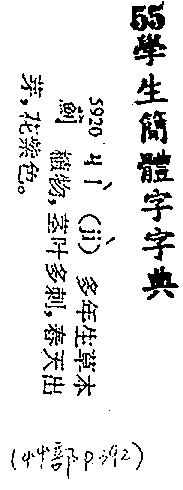 55學生簡體字字典
5920 ㄐㄧˋ (jì) 多年生草本
薊 植物,茎叶多刺,春天出
芽,花紫色。
(艸部P392)